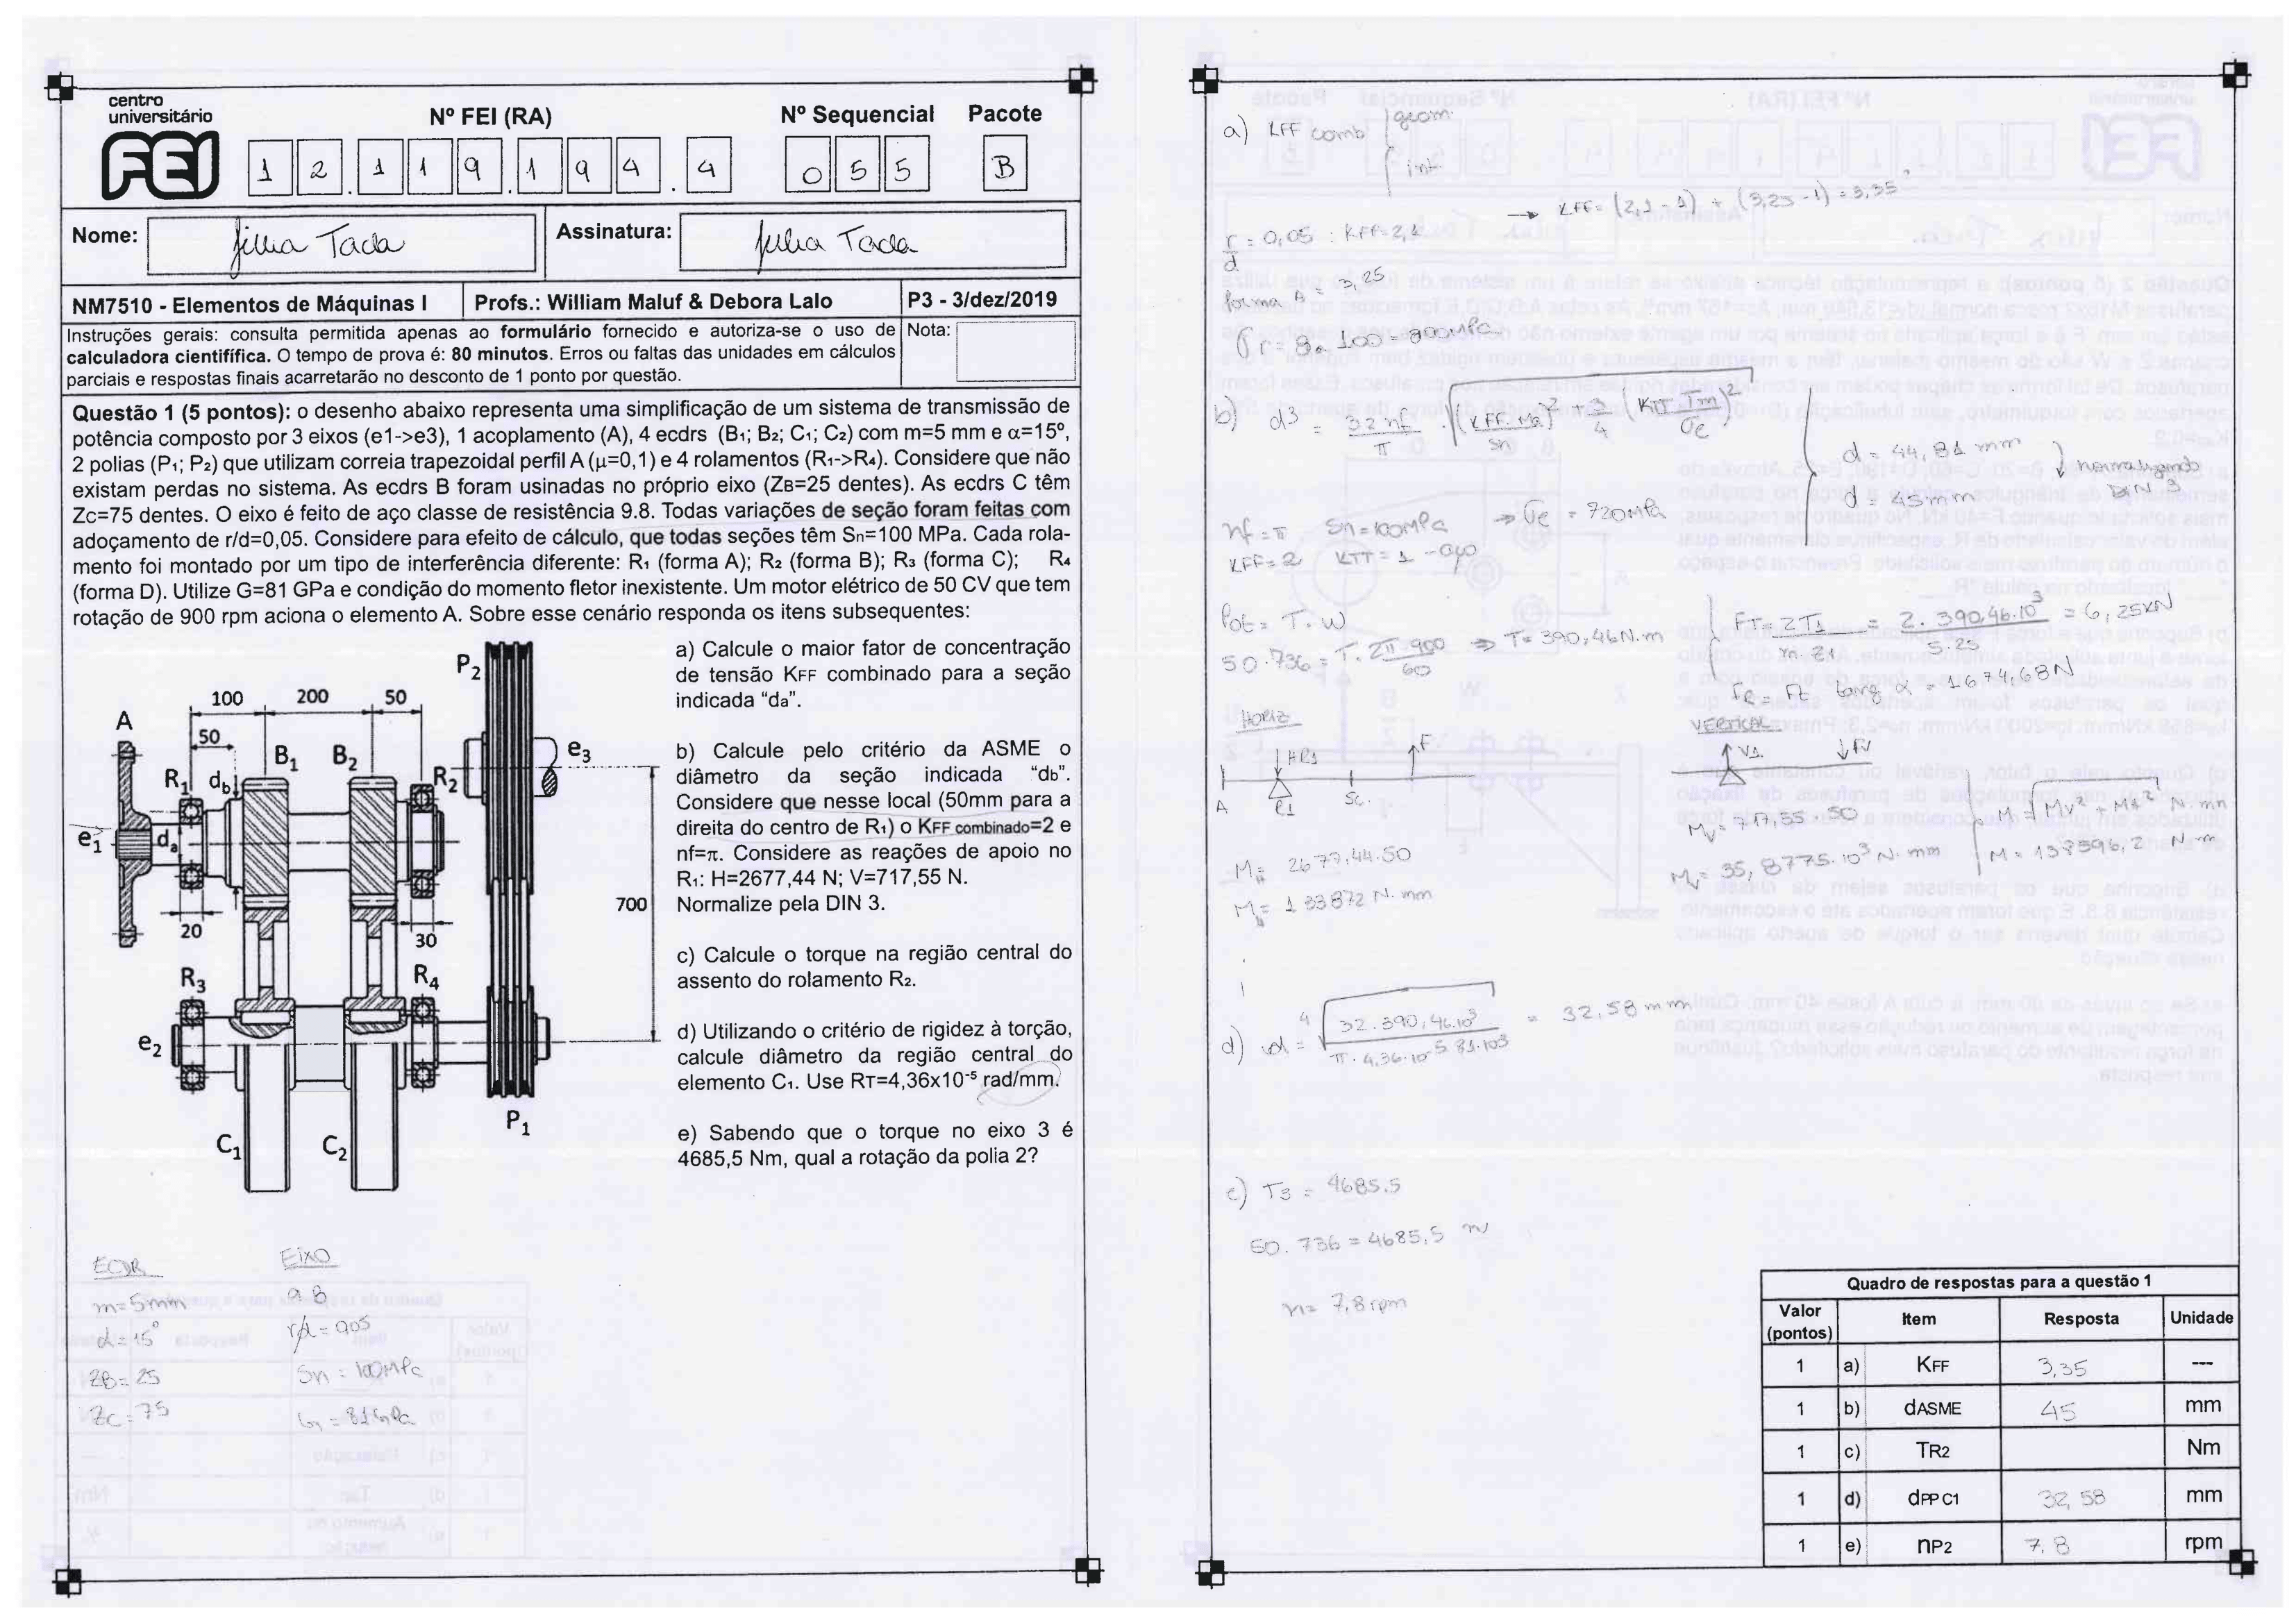 centro
universitário
FEI
Nº FEI (RA)
Nº Sequencial
Pacote
1 2 . 1 1 9 . 1 9 4 . 4
0 5 5
B
Nome:
Julia Tada
Assinatura:
Julia Tada
NM7510 - Elementos de Máquinas I
Profs.: William Maluf & Debora Lalo
P3 - 3/dez/2019
Instruções gerais: consulta permitida apenas ao formulário fornecido e autoriza-se o uso de
calculadora cientifífica. O tempo de prova é: 80 minutos. Erros ou faltas das unidades em cálculos
parciais e respostas finais acarretarão no desconto de 1 ponto por questão.
Nota:
Questão 1 (5 pontos): o desenho abaixo representa uma simplificação de um sistema de transmissão de
potência composto por 3 eixos (e1->e3), 1 acoplamento (A), 4 ecdrs (B1; B2; C1; C2) com m=5 mm e α=15º,
2 polias (P1; P2) que utilizam correia trapezoidal perfil A (μ=0,1) e 4 rolamentos (R1->R4). Considere que não
existam perdas no sistema. As ecdrs B foram usinadas no próprio eixo (ZB=25 dentes). As ecdrs C têm
Zc=75 dentes. O eixo é feito de aço classe de resistência 9.8. Todas variações de seção foram feitas com
adoçamento de r/d=0,05. Considere para efeito de cálculo, que todas seções têm Sn=100 MPa. Cada rola-
mento foi montado por um tipo de interferência diferente: R1 (forma A); R2 (forma B); R3 (forma C); R4
(forma D). Utilize G=81 GPa e condição do momento fletor inexistente. Um motor elétrico de 50 CV que tem
rotação de 900 rpm aciona o elemento A. Sobre esse cenário responda os itens subsequentes:
a) Calcule o maior fator de concentração
de tensão KFF combinado para a seção
indicada “da”.
b) Calcule pelo critério da ASME o
diâmetro da seção indicada “db”.
Considere que nesse local (50mm para a
direita do centro de R1) o KFF combinado=2 e
nf=π. Considere as reações de apoio no
R1: H=2677,44 N; V=717,55 N.
Normalize pela DIN 3.
c) Calcule o torque na região central do
assento do rolamento R2.
d) Utilizando o critério de rigidez à torção,
calcule diâmetro da região central do
elemento C1. Use RT=4,36x10-5 rad/mm.
e) Sabendo que o torque no eixo 3 é
4685,5 Nm, qual a rotação da polia 2?
P2
100 200 50
A
50
B1 B2
e3
R1 db
R2
e1
da
700
20
30
R3
R4
e2
P1
C1 C2
ECDR
m=5mm
α=15°
ZB=25
ZC=75
EIXO
9.8
r/d=0,05
Sn = 100MPa
G = 81GPa
a) KFF comb
geom.
int.
→ KFF= (2,1-1) + (3,25-1) = 3,35
r/d = 0,05 : KFF=2,1
forma A = 3,25
σr = 8. 100 = 800MPa
b) d3 = 32 nf / π . √(KFF.Ma / Sn)2 + 3/4 (KTT Tm / σe)2
d = 44,81 mm
↓ normalizando DIN 3
d = 45mm
nf = π Sn=100MPa → σe = 720MPa
KFF=2 KTT = 1 - aço
Pot = T. W
50.736 = T. 2π.900 / 60 ⇒ T=390,46N.m
FT= 2T1 / m.Z1 = 2. 390,46.10³ / 5.25 = 6,25kN
FR = Ft tang α = 1674,68N
HORIZ
HR1
F
A
R1
Sc.
VERTICAL
V1
FV
MH = 2677,44.50
MH = 133872 N.mm
MV = 717,55 . 50
MV = 35,8775.10³ N.mm
M = √MV² + MH² N.mm
M = 138596,2 N.m
d) d = 4√32.390,46.10³ / π.4,36.10-5.81.10³ = 32,58 mm
e) T3 = 4685.5
50. 736 = 4685,5 n
n= 7,8rpm
Quadro de respostas para a questão 1
Valor (pontos) Item Resposta Unidade
1 a) KFF 3,35 ---
1 b) dASME 45 mm
1 c) TR2 Nm
1 d) dPP C1 32,58 mm
1 e) nP2 7,8 rpm